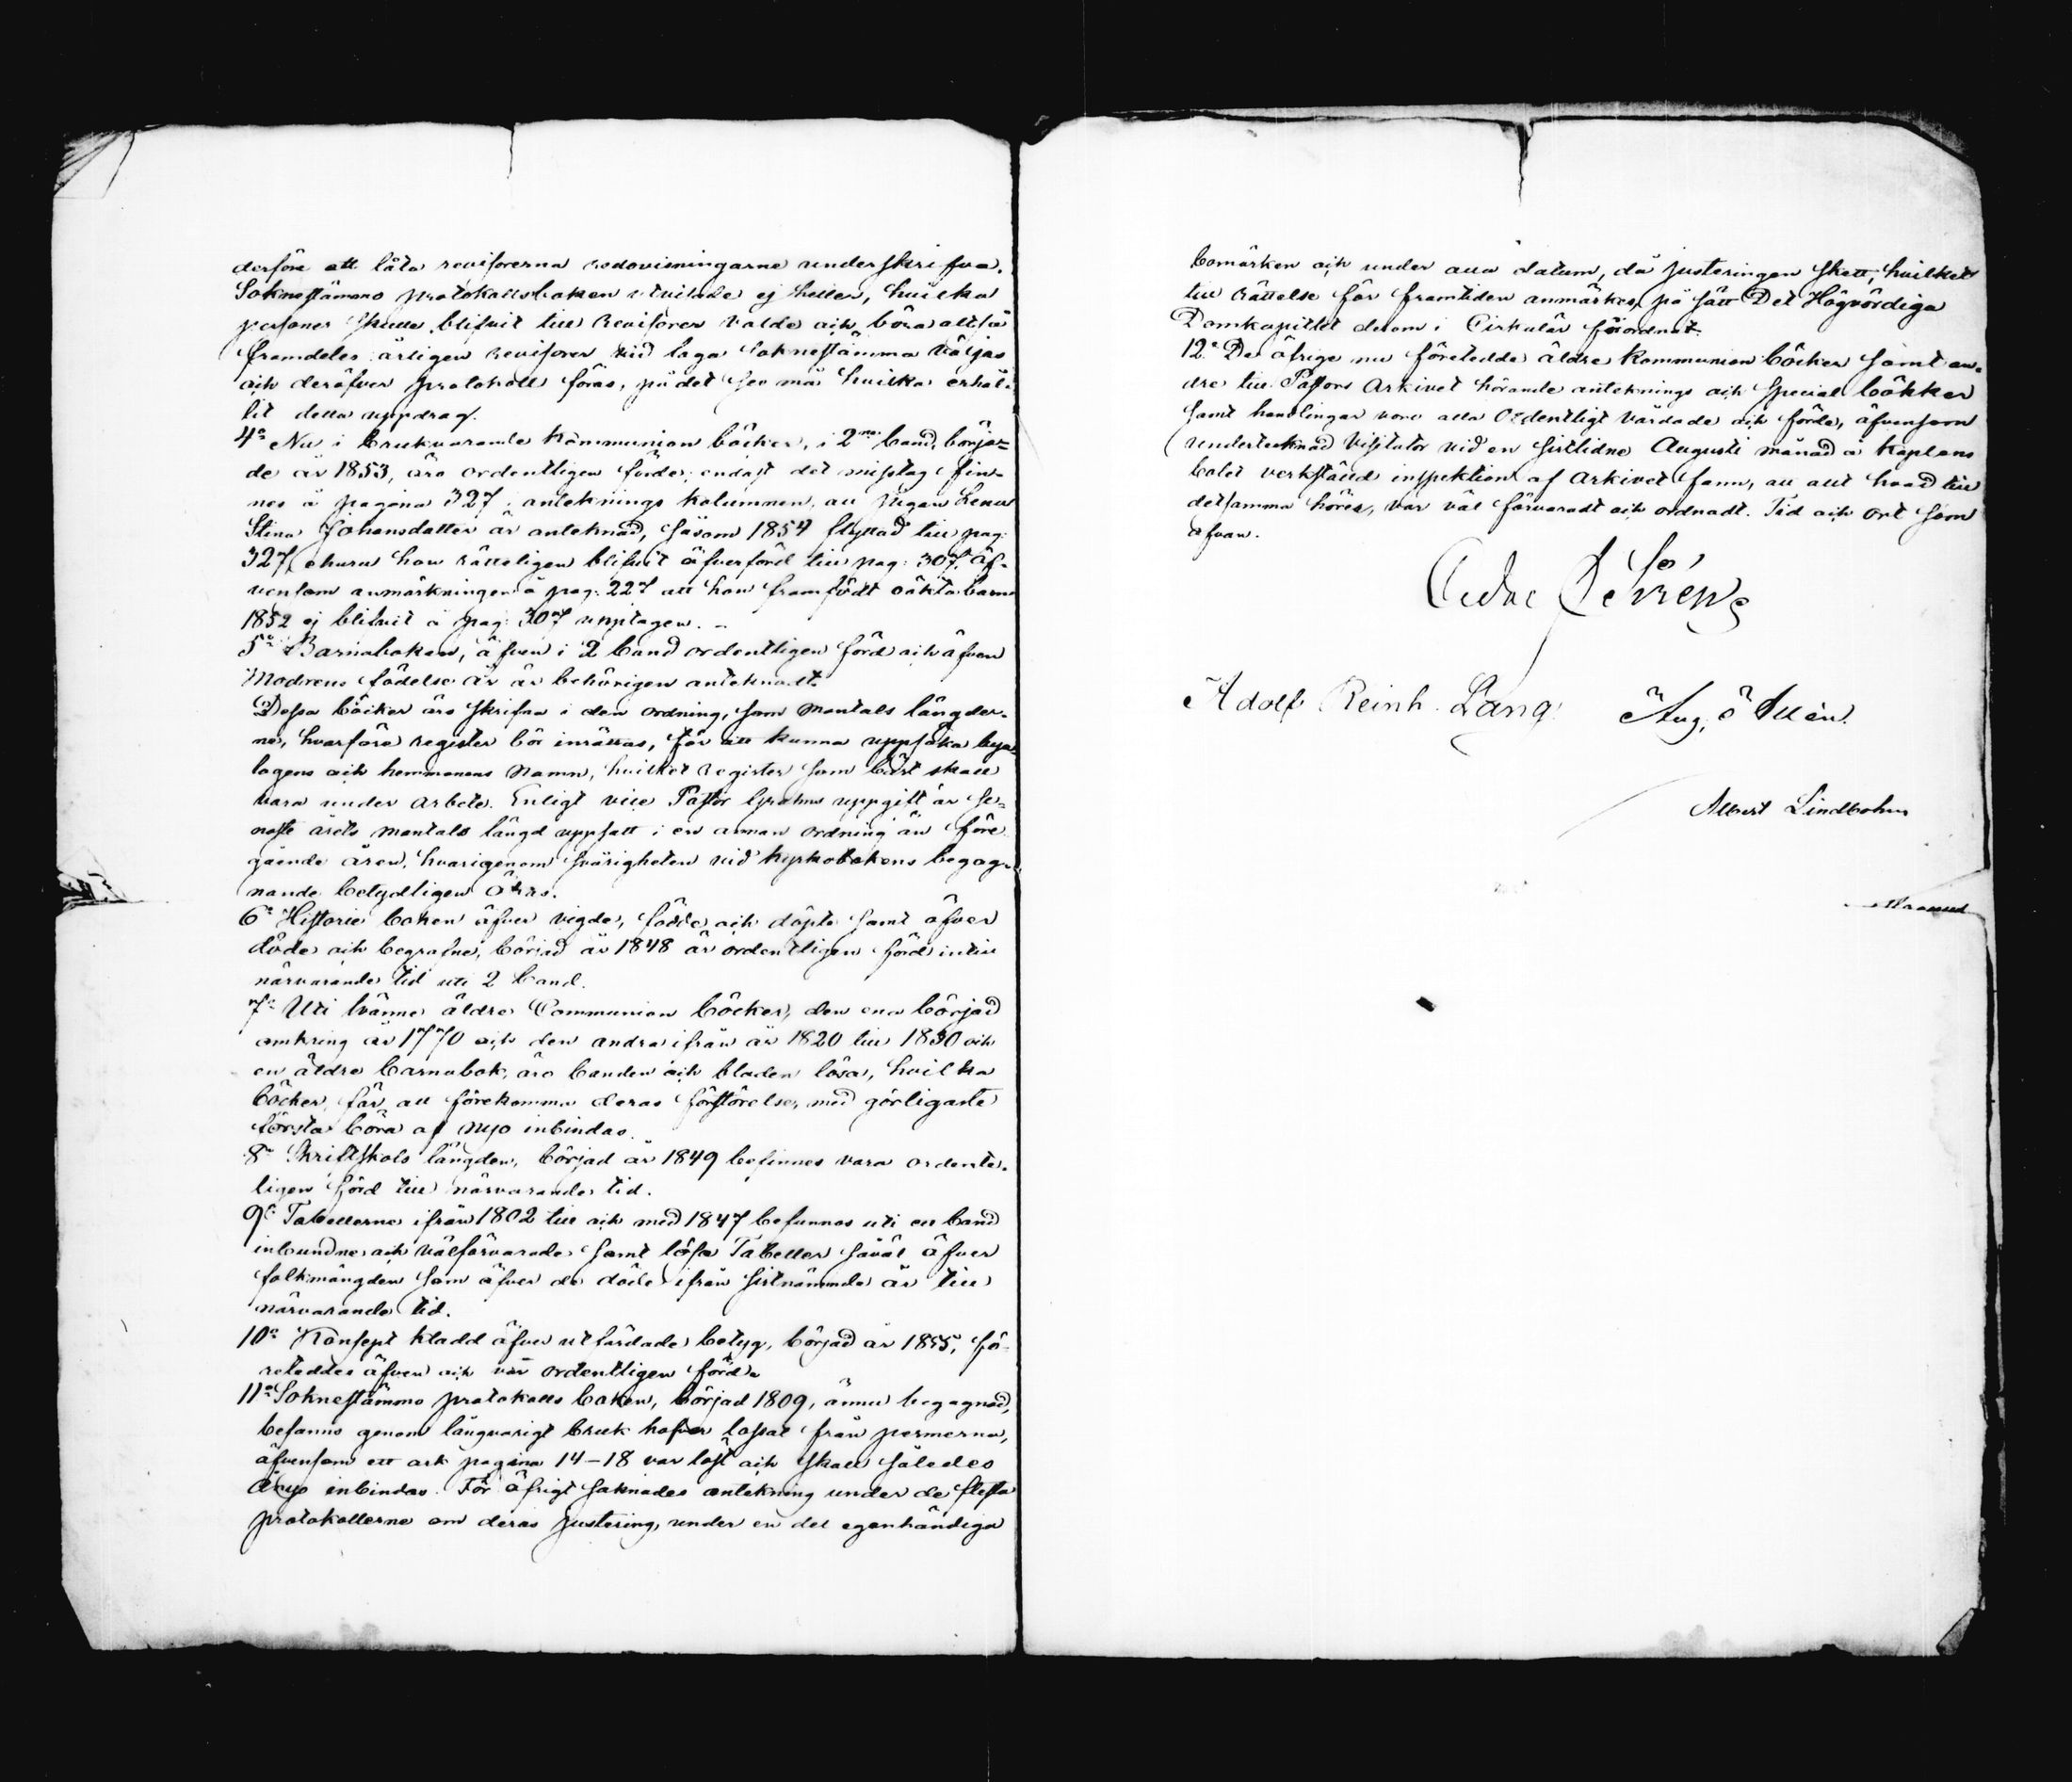 derföre att låta revisorerna redovisningarne underskrifva.
Soknestämmo protokollsboken utvisade ej heller, hvilka
personer skulle blifvit till Revisorer valde och böra altså
framdeles årligen revisorer vid laga soknestämma väljas
och deröfver protokoll föras, på det se må hvilka erhål-
lit detta uppdrag.
4:o Nu i brukvarande Kommunion böcker, i 2:ne band, börja-
de år 1853, äro ordentligen förde; endast det misstag fin-
nes å pagina 327 i anteknings kolumnen, att Pigan Lena
Stina Johansdotter är anteknad, såsom 1854 flyttad till pag:
327, ehuru hon rätteligen blifvit öfverförd till pag: 307. Äf-
vensom anmärkningen å pag: 227 att hon framfödt oäkta barn
1852 ej blifvit å pag: 307 upptagen. -
5:o Barnaboken, äfven i 2 band ordentligen förd och äfven
Modrens födelse år är behörigen anteknadt.
Dessa böcker äro skrifna i den ordning, som Mantals längder-
na, hvarföre register bör inrättas, för att kunna uppsöka bya-
lagens och hemmanens Namn, hvilket register som bäst skall
vara under arbete. Enligt vice Pastor uppgift är se-
naste årets Mantals längd uppsatt i en annan ordning än före
gående åren, hvarigenom svårigheten vid kyrkobokens begag-
nande betydligen ökas.
6:o Historie boken öfver vigde, födde och döpte samt öfver
döde och begrafne, börjad år 1848 är ordentligen förd intill
närvarande tid uti 2 band.
7:o Uti tvänne äldre Communion böcker, den ena börjad
omkring år 1770 och den andra ifrån år 1820 till 1830 och
en äldre barnabok, äro banden och bladen lösa, hvilka
böcker, för att förekomma deras förstörelse, med görligaste
första böra af nyo inbindas.
8:o Skriftskols längden, börjad år 1849 befinnes vara ordent-
ligen förd till närvarande tid.
9:o Tabellerne ifrån 1802 till och med 1847 befunnos uti ett band
inbundne och välförvarade samt lösa Tabeller såväl öfver
folkmängden som öfver de döde ifrån sistnämnde år till
närvarande tid.
10:o Konsept kladd öfver utfärdade betyg, börjad år 1855, fö-
reteddes äfven och var ordentligen förd.
11:o Soknestämmo protokolls boken, börjad 1809, ännu begagnad,
befanns genom långvarigt bruk hafva lossat från permerna,
äfvensom ett ark pagina 14-18 var löst och skall således
ånyo inbindas. För öfrigt saknades antekning under de flesta
protokollerne om deras justering, under en del egenhändiga
bomärken och under alla datum, då justeringen skett, hvilket
till rättelse för framtiden anmärkes, på sätt Det Högvördiga
Domkapitlet derom i Cirkulär förordnat.
12:o De öfrige nu företedde äldre Kommunion böcker samt an-
dre till Pastors Arkivet hörande anteknings och special bökker
samt handlingar voro alla Ordentligt vårdade och förde, äfvensom
Undertecknad Visitator vid en sistlidne Augusti månad å Kaplans
bolet verkställd inspektion af Arkivet fann, att allt hvad till
detsamma hörer, var väl förvaradt och ordnadt. Tid och ort som
ofvan.
Adolf Reinh. Lang
Aug.
Albert Lindbohm